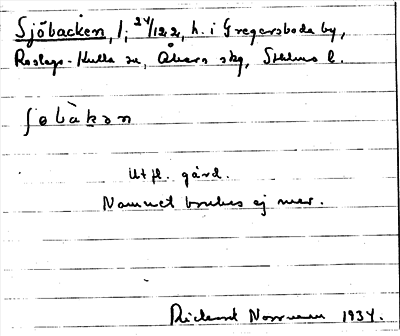 Sjöbacken, 1, 24/122, h. i Gregersboda by,
Roslags-Kulla sn, Åkers skg, Sthlms l.
ʃøbàkən
Utfl. gård.
Namnet brukas ej mer.
Rickard 1934.